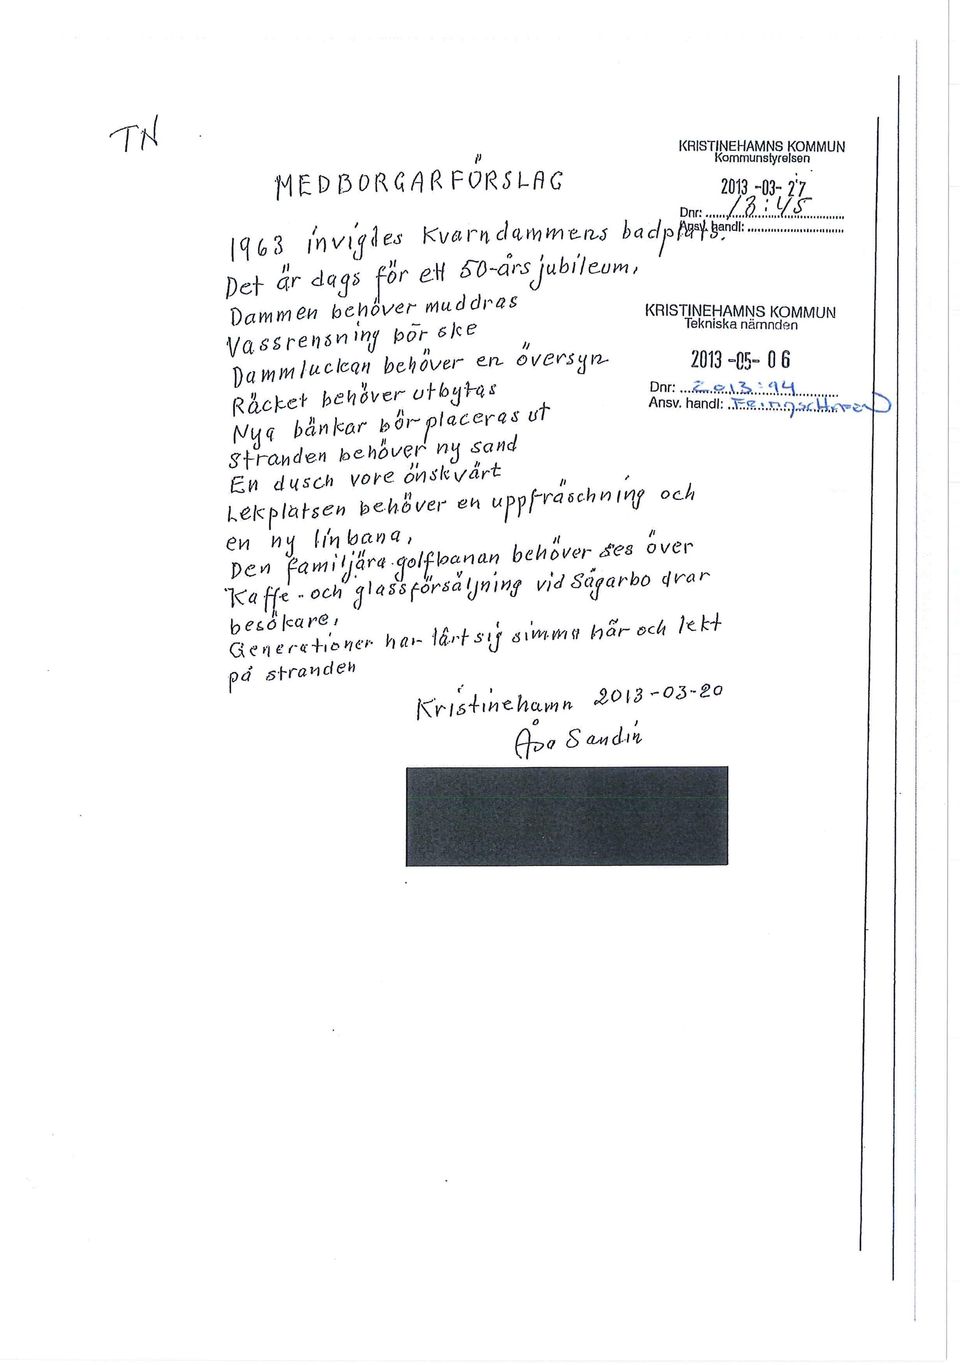 TN
KRISTINEHAMNS KOMMUN
Kommunstyrelsen
2013 -03- 27
Dnr: 13:45
Ansv. handl:
MEDBORGARFÖRSLAG
1963 invigdes Kvarndammens badplats.
Det är dags för ett 50-årsjubileum,
Dammen behöver muddras
Vassrensning bör ske
Dammluckan behöver en översyn
Räcket behöver utbytas
Nya bänkar bör placeras ut
Stranden behöver ny sand
En dusch vore önskvärt
Lekplatsen behöver en uppfräschning och
en ny linbana,
Den familjära golfbanan behöver ses över
Kaffe- och glassförsäljning vid Sågarbo drar
besökare,
Generationer har lärt sig simma här och lekt
på stranden
KRISTINEHAMNS KOMMUN
Tekniska nämnden
2013 -05- 06
Dnr: 2013:94
Ansv. handl:
Kristinehamn 2013-03-20
Sandin